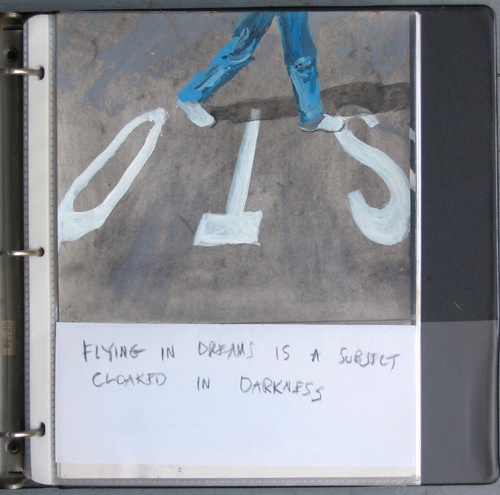 STO
FLYING IN DREAMS IS A SUBJECT
CLOAKED IN DARKNESS